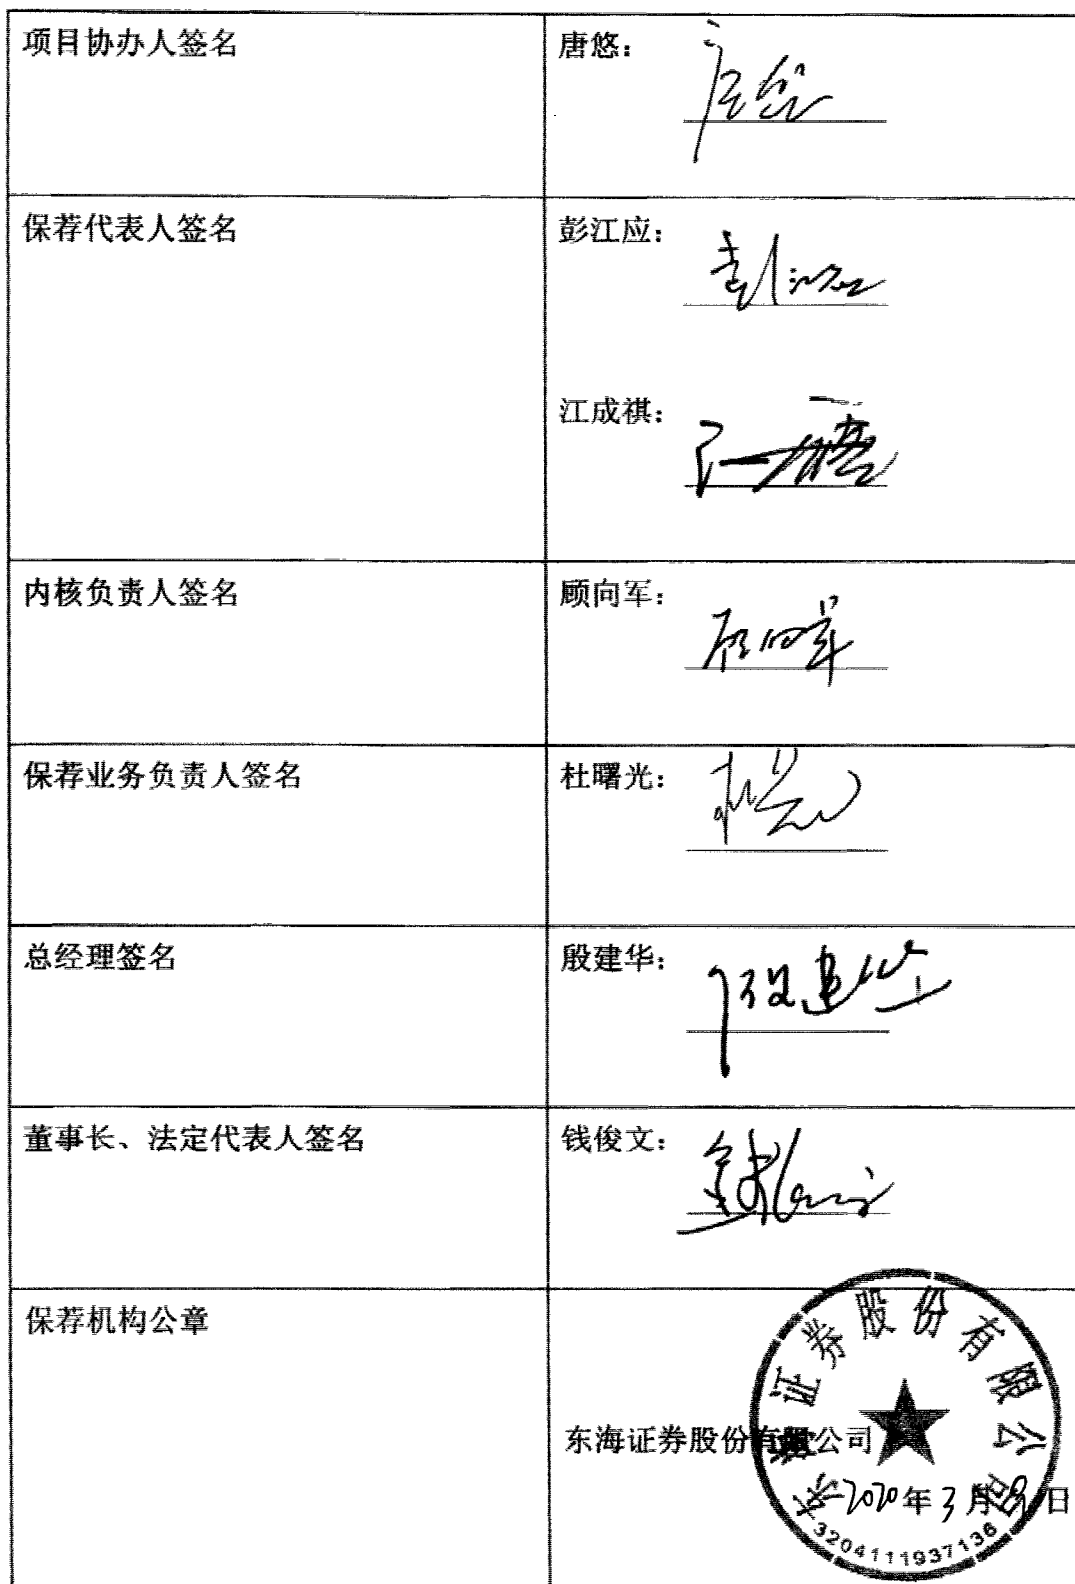 项目协办人签名
唐悠：
保荐代表人签名
彭江应：
江成祺：
内核负责人签名
顾向军：
保荐业务负责人签名
杜曙光：
总经理签名
殷建华：
董事长、法定代表人签名
钱俊文：
保荐机构公章
东海证券股份有限公司
2020年3月 日
东海证券股份有限公司
3204111937136